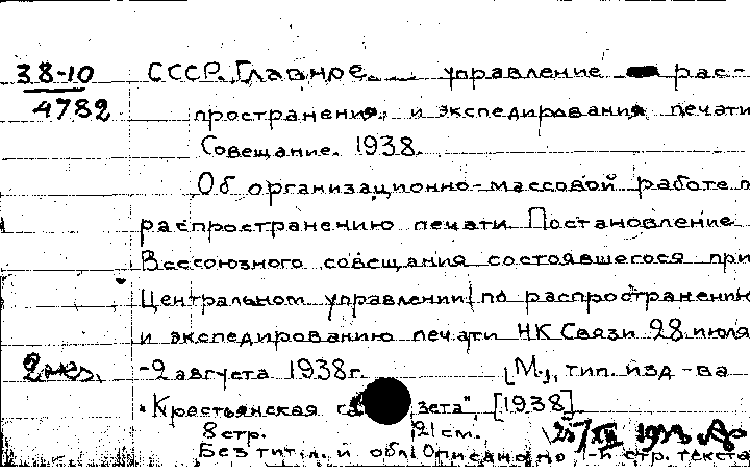 38-10 СССР. Главное управление рас-
4782 пространения и экспедирования печати
Совещание. 1938.
Об организационно-массовой работе п
распространению печати Постановление
Всесоюзного совещания состоявшегося при
Центральном управлении по распространению
и экспедированию печати НК Связи 28 июля
2 экз. -2 августа 1938 г. [М., тип. изд-ва
"Крестьянская газета", [1938].
8 стр. 21 см.
Без тит. л. и обл. Описано по 1-й стр. текста